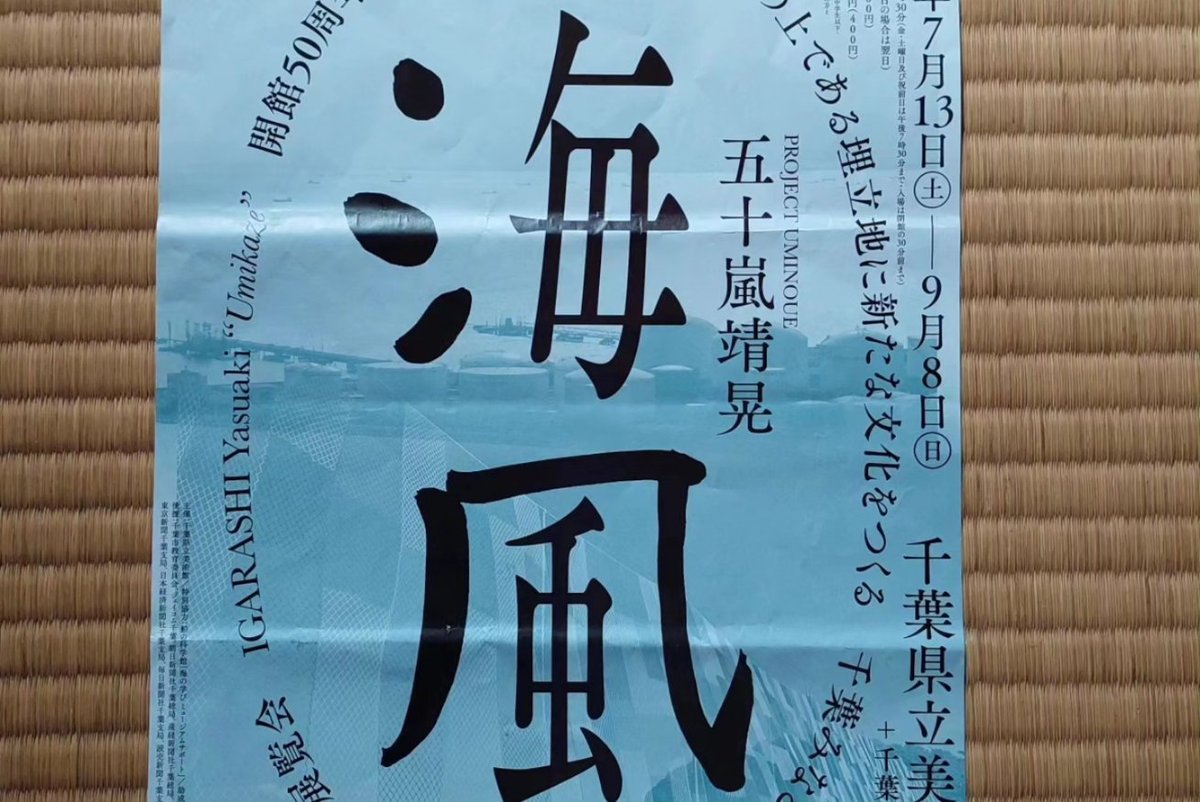 年7月13日(土)——9月8日(日)
千葉県立美
+千葉
30分(金・土曜日及び祝前日は午後7時30分まで・入場は閉館の30分前まで)
日の場合は翌日)
円(400円)
の上である埋立地に新たな文化をつくる
千葉みな
PROJECT UMINOUE
五十嵐靖晃
海風
開館50周年
IGARASHI Yasuaki “Umikaze”
展覧会
主催:千葉県立美術館
東京新聞千葉支局、日本経済新聞社千葉支局、毎日新聞社千葉支局、読売新聞千葉